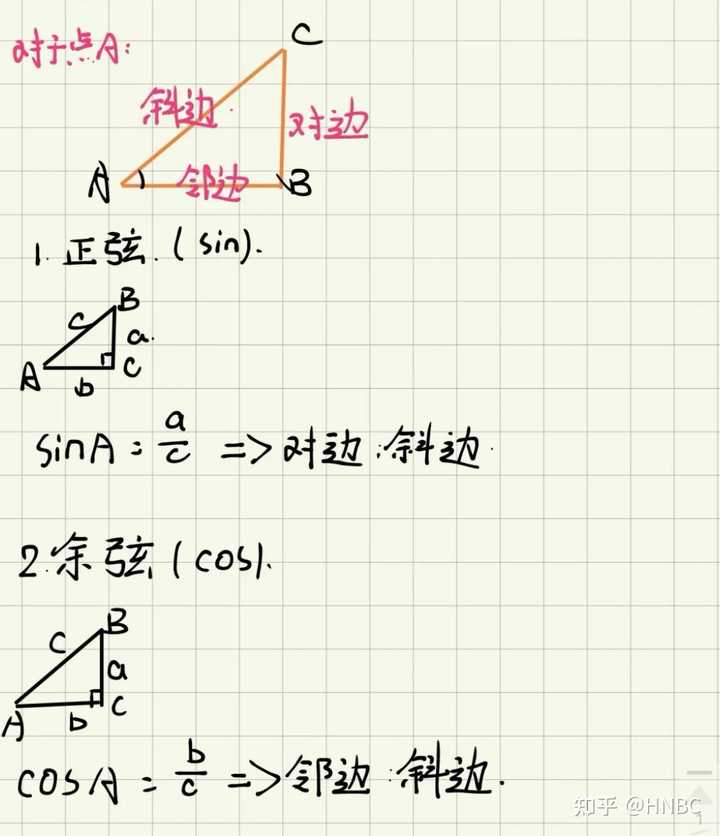 对于点A:
C
斜边
对边
A
邻边
B
1. 正弦. (sin).
B
c
a.
A
C
b
sinA = a/c => 对边:斜边.
2. 余弦 (cos).
B
c
a
C
A
b
cosA = b/c => 邻边:斜边.
知乎 @HNBC